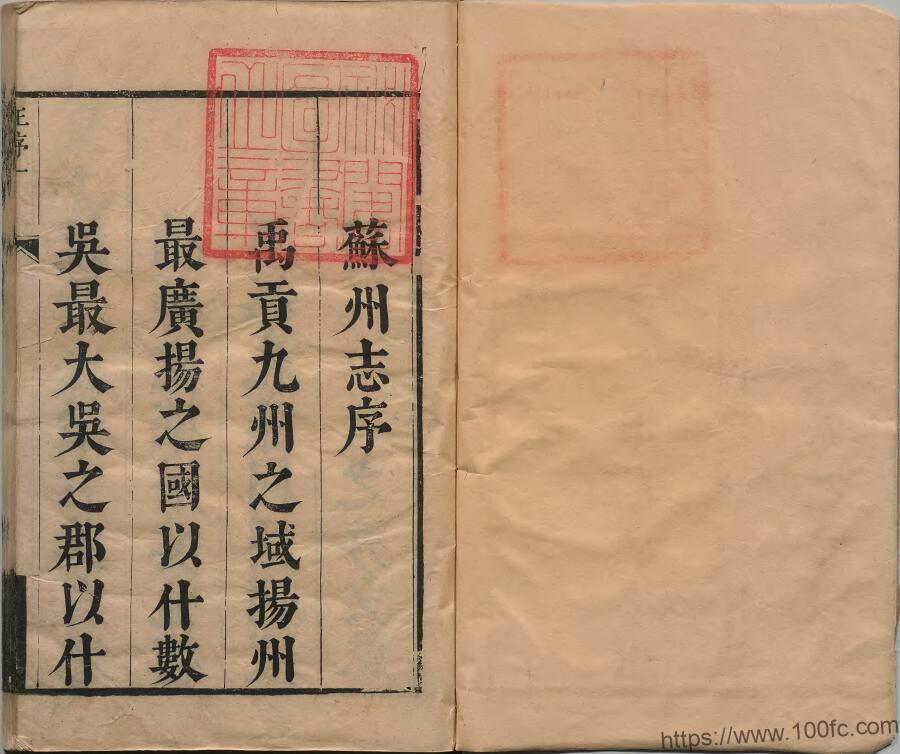 蘇州志序
禹貢九州之域揚州
最廣揚之國以什數
吳最大吳之郡以什
https://www.100fc.com